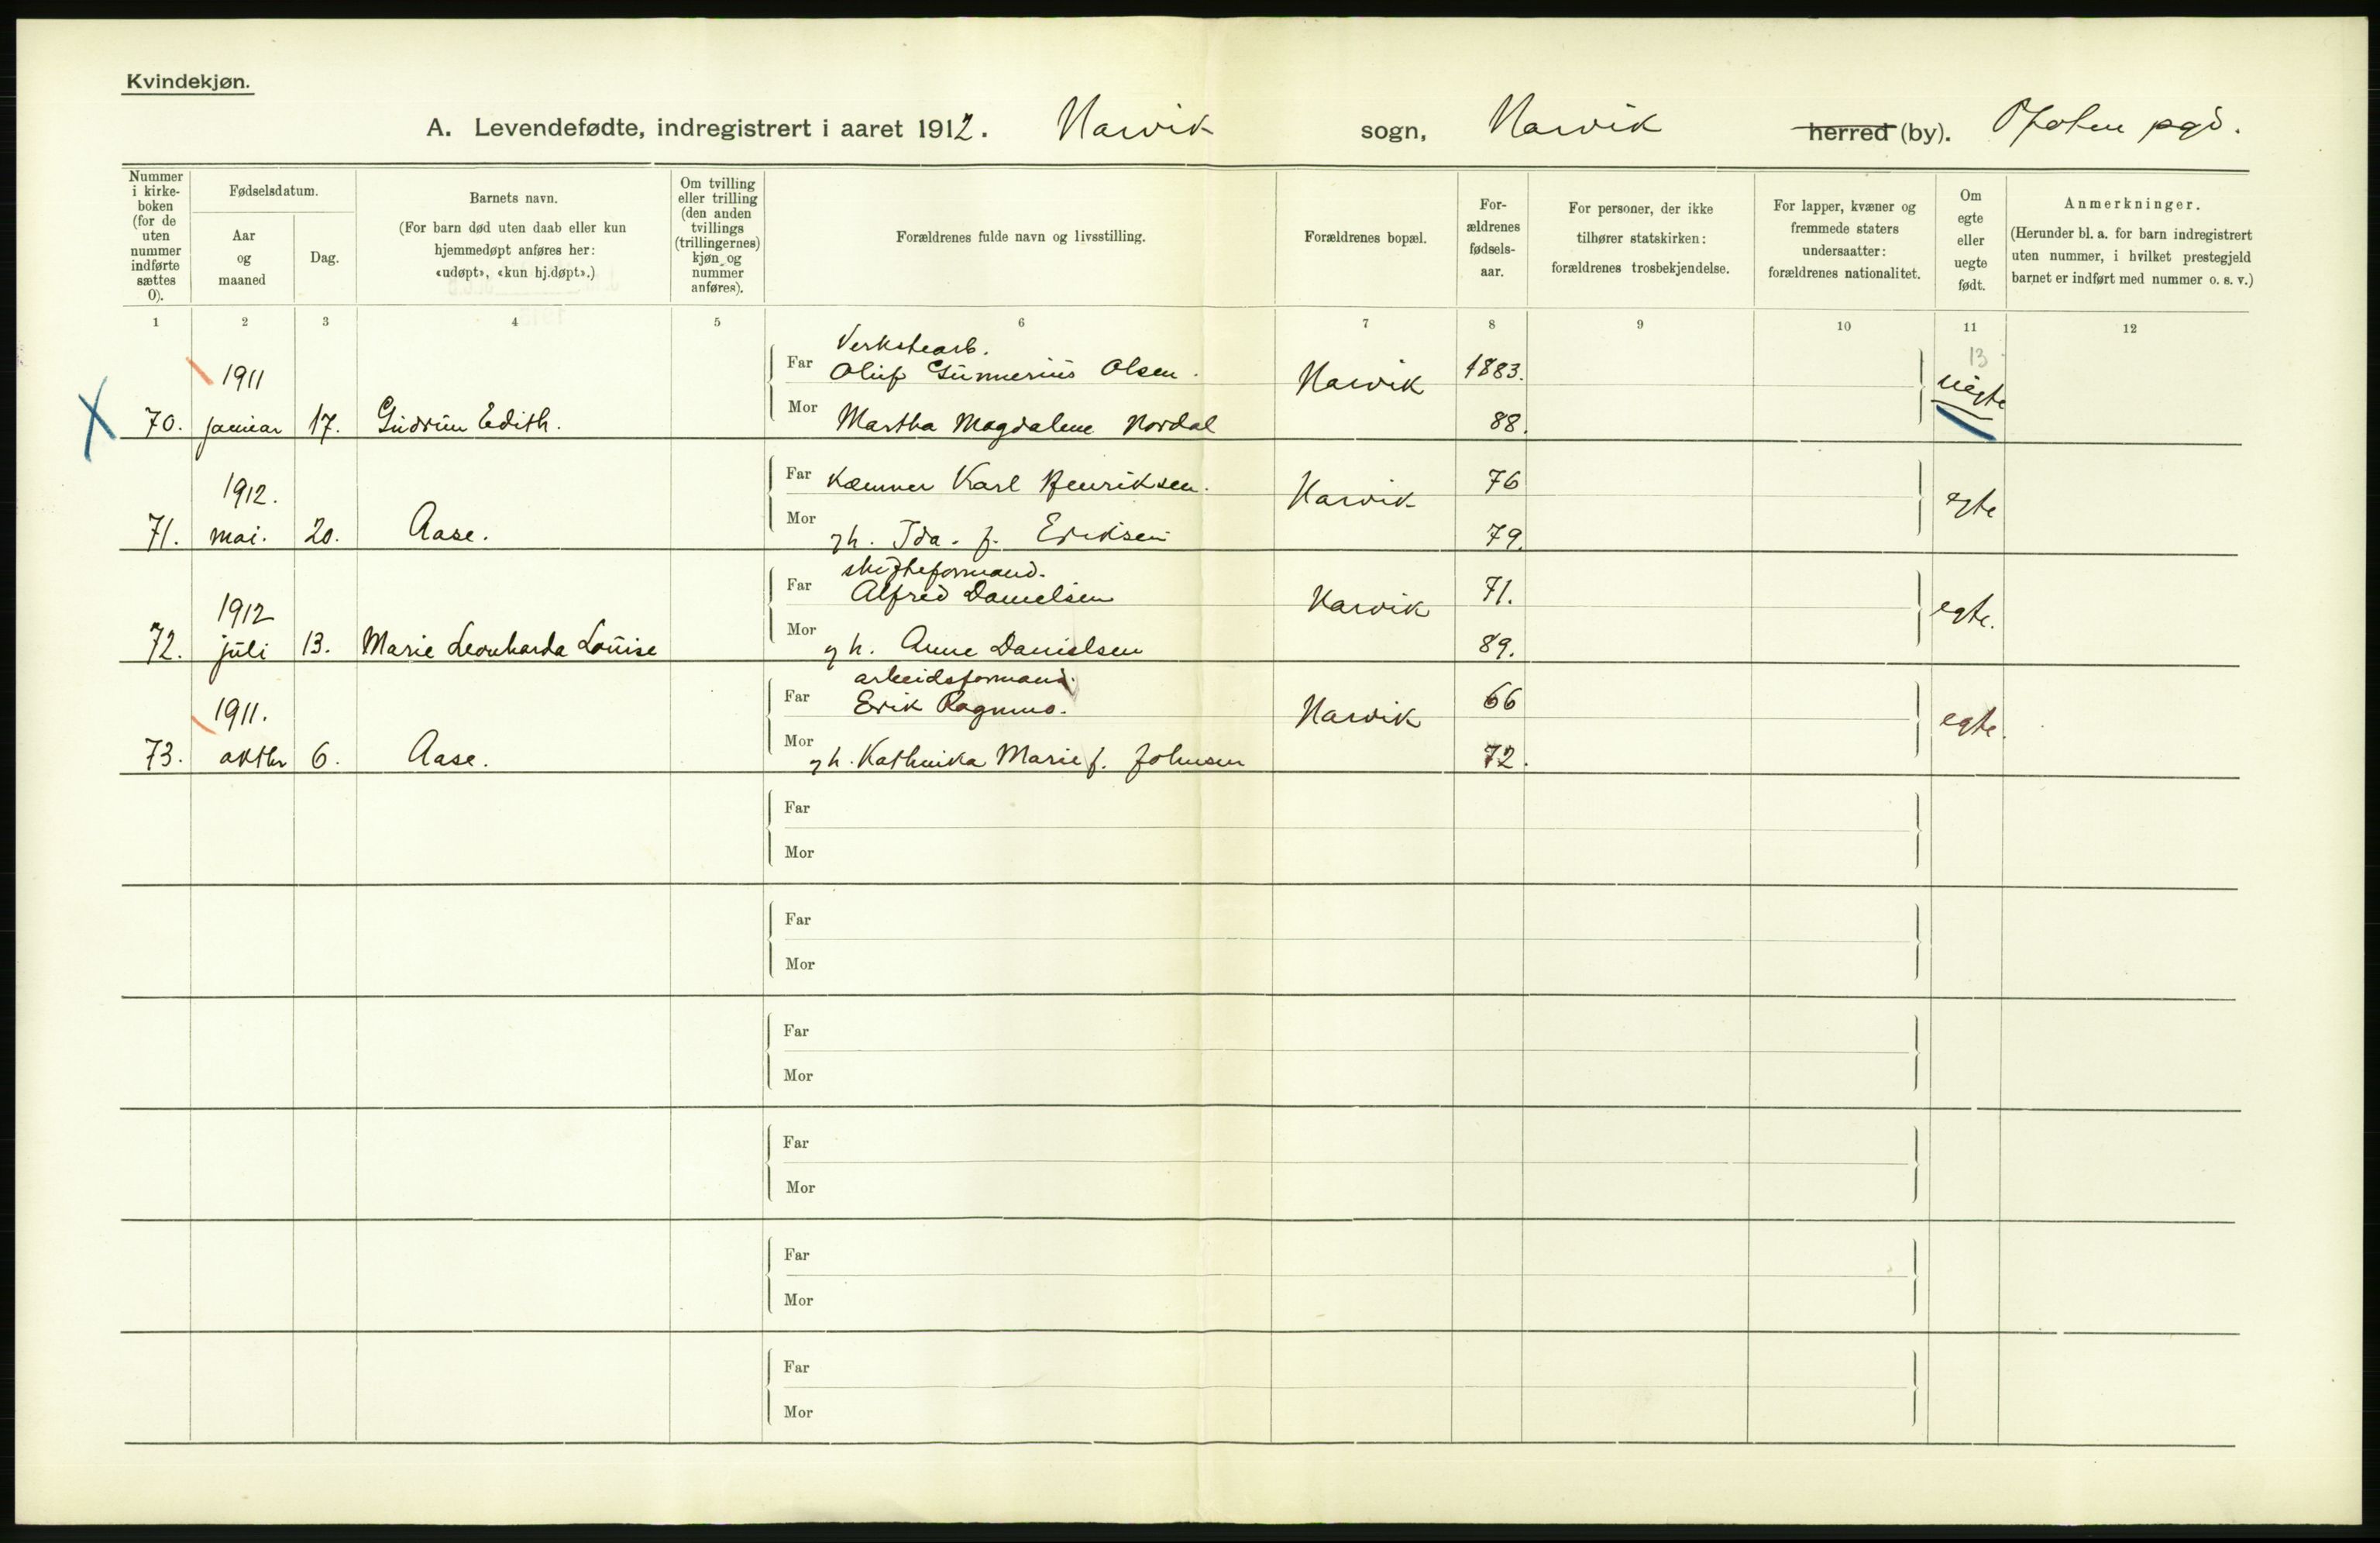 Kvindekjøn.
A. Levendefødte, indregistrert i aaret 1912. Narvik sogn, Narvik herred (by). Ofoten pgd.
Nummer i kirkeboken (for de uten nummer indførte sættes 0).
Fødselsdatum.
Aar og maaned
Dag.
Barnets navn.
(For barn død uten daab eller kun
hjemmedøpt anføres her:
«udøpt», «kun hj.døpt».)
Om tvilling
eller trilling
(den anden
tvillings
(trillingernes)
kjøn og
nummer
anføres).
Forældrenes fulde navn og livsstilling.
Forældrenes bopæl.
For-
ældrenes
fødsels-
aar.
For personer, der ikke
tilhører statskirken:
forældrenes trosbekjendelse.
For lapper, kvæner og
fremmede staters
undersaatter:
forældrenes nationalitet.
Om
egte
eller
uegte
født.
Anmerkninger.
(Herunder bl. a. for barn indregistrert
uten nummer, i hvilket prestegjeld
barnet er indført med nummer o. s. v.)
1 2 3 4 5 6 7 8 9 10 11 12
Verkstearb.
13
1911 Far Oluf Gunnerius Olsen. Narvik 1883. uegte
70. januar 17. Gudrun Edith. Mor Martha Magdalene Nordal 88.
1912. Far Kæmner Karl Henriksen. Narvik 76 egte
71. mai. 20. Aase. Mor gh. Ida. f. Eriksen 79.
skifteformand.
1912 Far Alfred Danielsen Narvik 71. egte.
72. juli 13. Marie Leonharda Louise Mor gh. Anne Danielsen 89.
arbeidsformand.
1911. Far Erik Ragnmo. Narvik 66 egte.
73. oktbr 6. Aase. Mor gh. Kathinka Marie f. Johnsen 72.
Far
Mor
Far
Mor
Far
Mor
Far
Mor
Far
Mor
Far
Mor